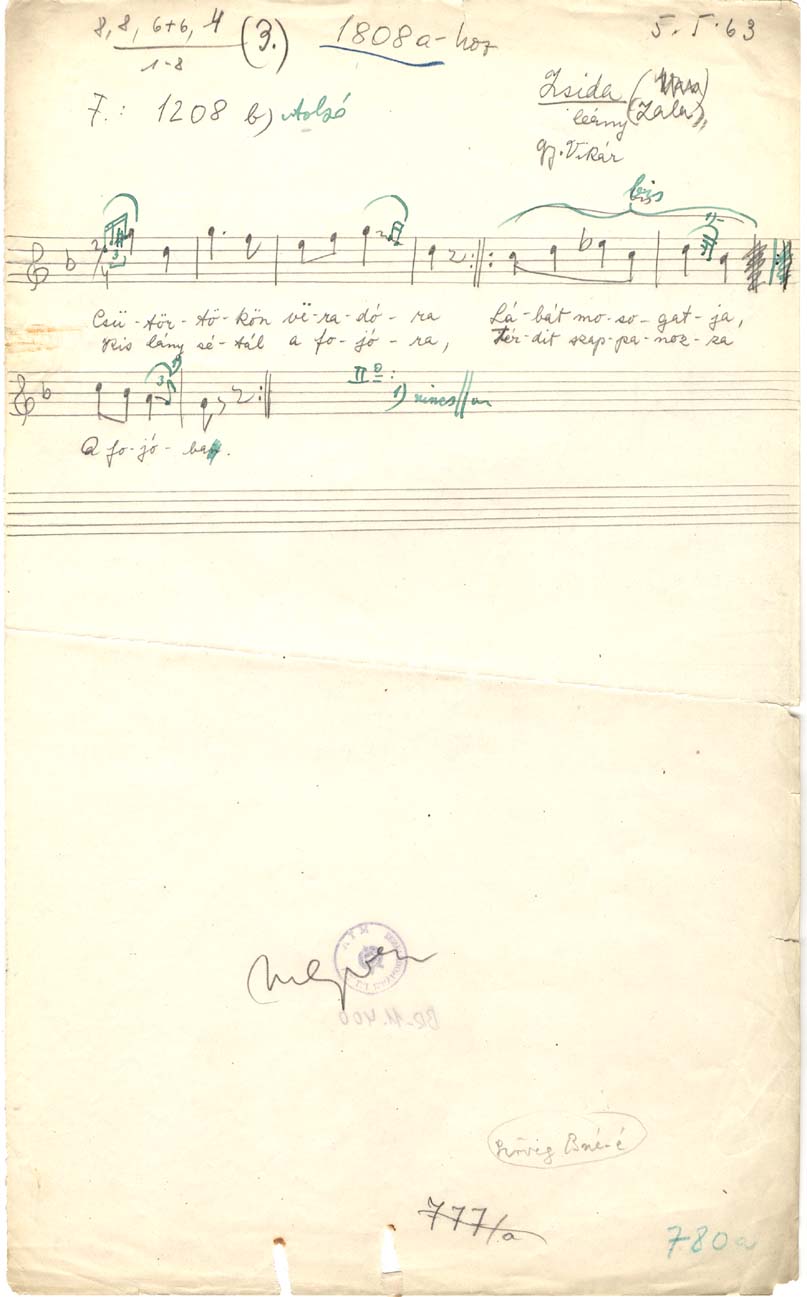 8, 8, 6+6, 4 (3.) 1808a-hoz 5. I. 63
1-8
F.: 1208 b) Alsó
Zsida (Vas)
leány (Zala)
gy. Vikár
bis
Csü-tör-tö-kön vë-ra-dó-ra Lá-bát mo-so-gat-ja,
Kis lány sé-tál a fo-jó-ra, Tér-dit szap-pa-noz-za
II°: 1) nincs
A fo-jó-ba.
megvan
BR-11.400
777/a
780a